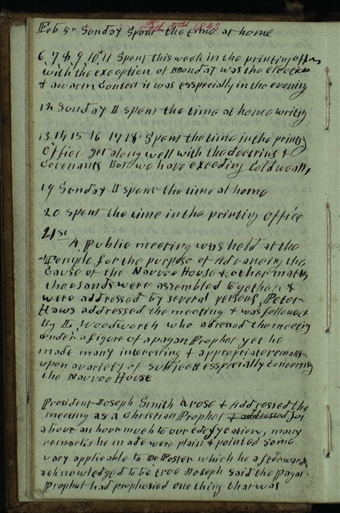 Feb 5th Sunday Spent the time at home
6, 7, 8, 9, 10, 11 Spent this week in the printing office
with the exception of Monday was the election
& a warm contest it was esspecially in the evening
12 Sunday I spent the time at home writing
13 14 15 16 17 18 Spent the time in the printing
office get along well with the doctrins &
Covenants But we have exceeding Cold weath
19 Sunday I spent the time at home
20 spent the time in the printing office
21st
A Public meeting was held at the
Temple for the purpose of Advancing the
Cause of the Nauvoo House & other matters
thousands were assembled together &
were addressed by several persons, Peter
Haws addressed the meeting & was followed
By L. Woodworth who adressed the meeting
under a figure of a pagan Prophet yet he
made many interesting & appropriate remarks
upon a variety of subjects esspecially concerning
the Nauvoo House
President Joseph Smith arose & addressed the
meeting as a Christian Prophet & addressed for
about an hour much to our edifycation, many
remarks he made were plain & pointed some
vary applicable to Dr Foster which he afterwards
acknowledged to be true Joseph said the Pagan
Prophet had prophesied one thing that was